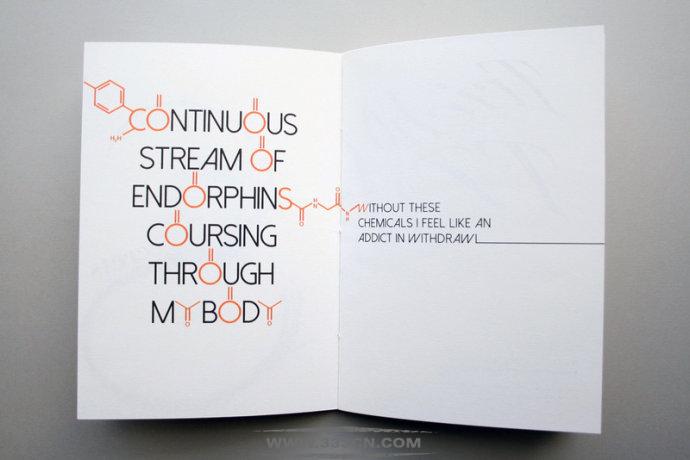 CONTINUOUS
STREAM OF
ENDORPHINS
COURSING
THROUGH
MY BODY
WITHOUT THESE
CHEMICALS I FEEL LIKE AN
ADDICT IN WITHDRAWL
H₂H
O
H
N
O
N
H
O
O
WWW.333CN.COM